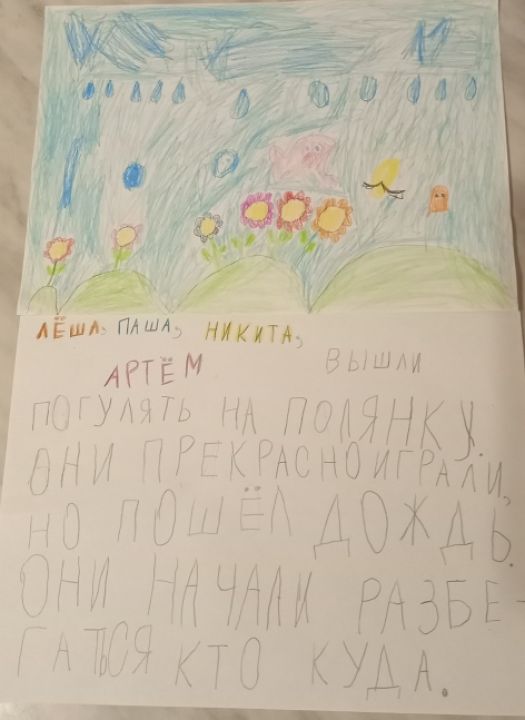 ЛЁША, ПАША, НИКИТА,
АРТЁМ ВЫШЛИ
ПОГУЛЯТЬ НА ПОЛЯНКУ.
ОНИ ПРЕКРАСНО ИГРАЛИ,
НО ПОШЁЛ ДОЖДЬ.
ОНИ НАЧАЛИ РАЗБЕ-
ГАТЬСЯ КТО КУДА.